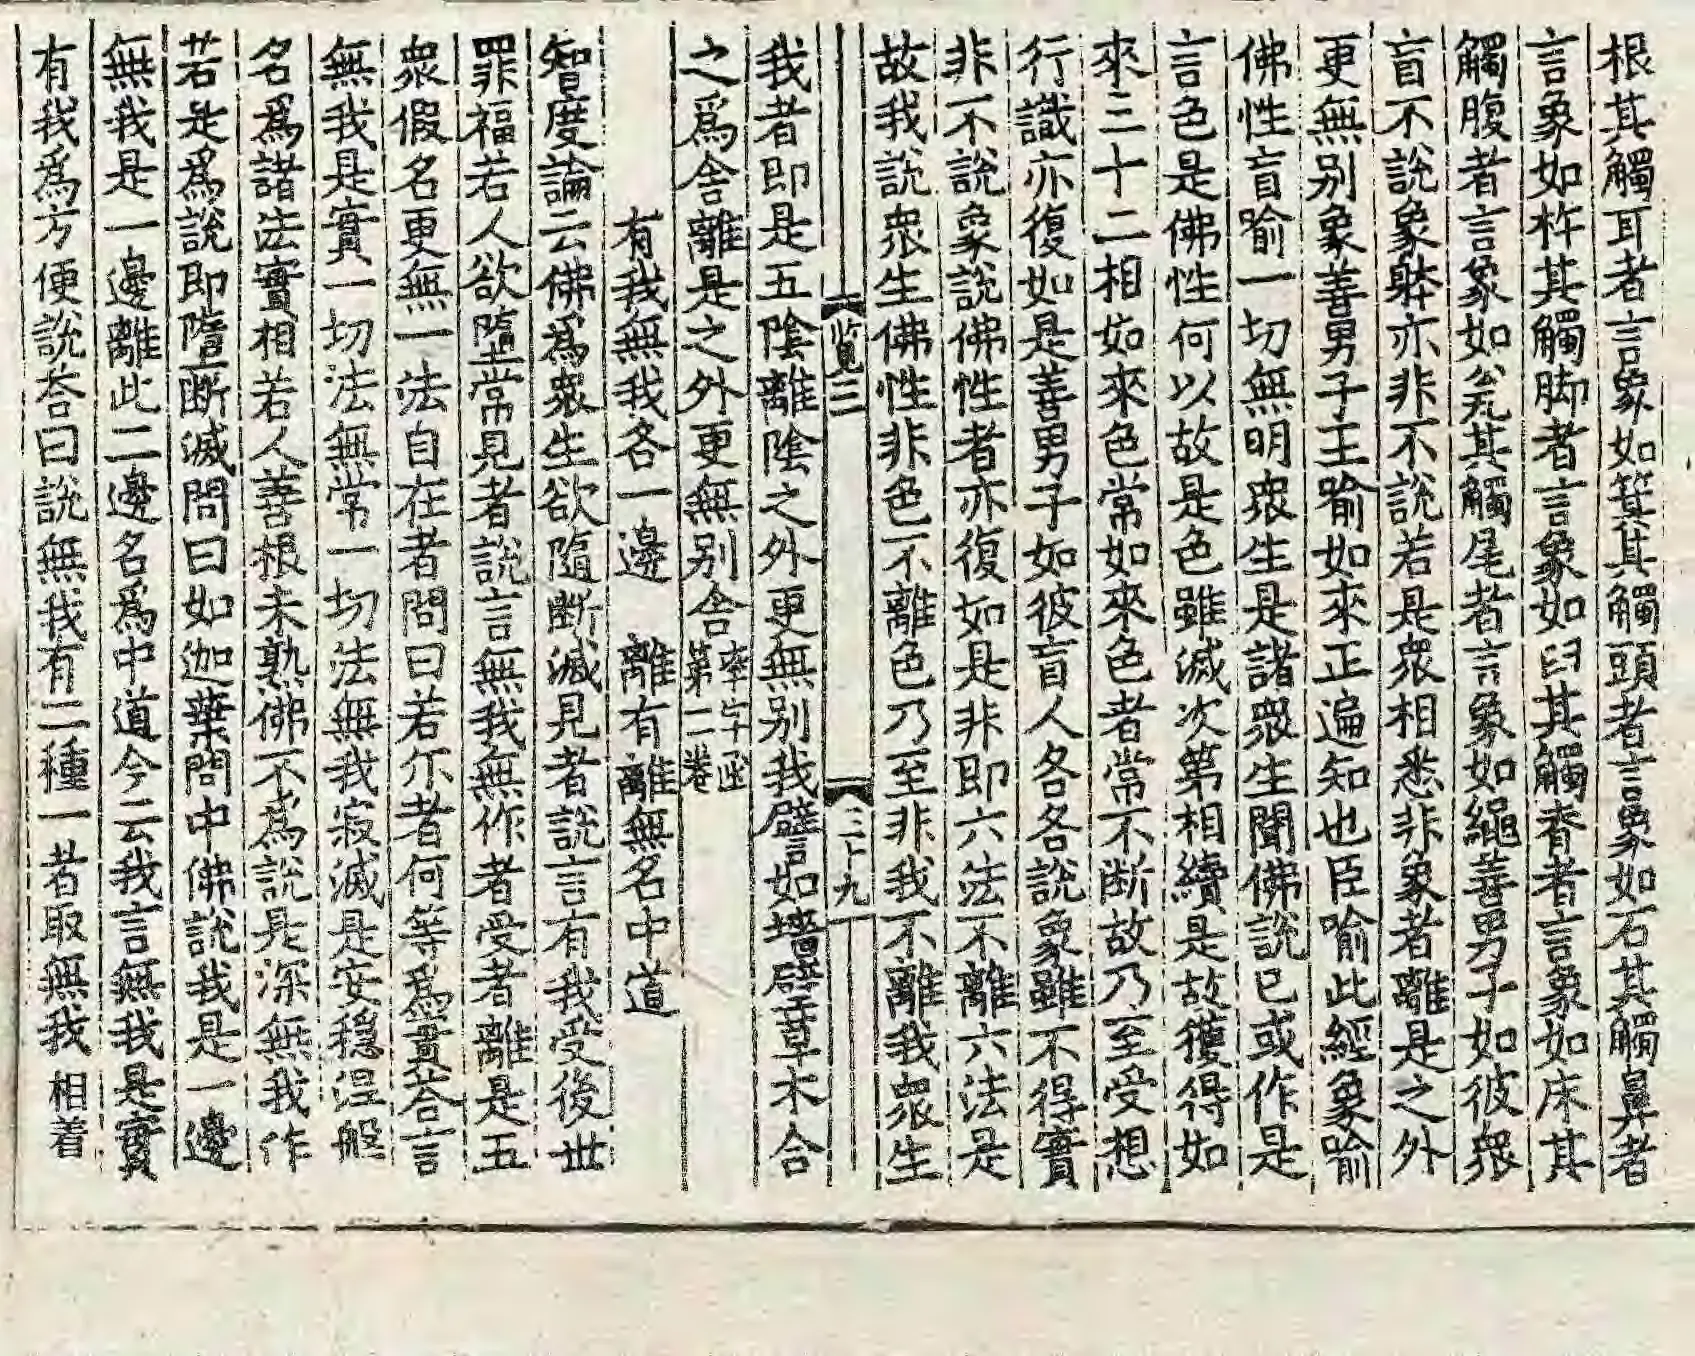 根其觸耳者言象如箕其觸頭者言象如石其觸鼻者
言象如杵其觸脚者言象如臼其觸脊者言象如床其
觸腹者言象如瓮其觸尾者言象如繩善男子如彼衆
盲不說象躰亦非不說若是衆相悉非象者離是之外
更無別象善男子王喻如來正遍知也臣喻此經象喻
佛性盲喻一切無明衆生是諸衆生聞佛說已或作是
言色是佛性何以故是色雖滅次第相續是故獲得如
來三十二相如來色常如來色者常不断故乃至受想
行識亦復如是善男子如彼盲人各各說象雖不得實
非不說象說佛性者亦復如是非即六法不離六法是
故我說衆生佛性非色不離色乃至非我不離我衆生
覧三 三十九
我者即是五陰離陰之外更無別我譬如墻壁草木合
之爲舍離是之外更無別舍
率字函
第二卷
有我無我各一邊 離有離無名中道
智度論云佛爲衆生欲隨断滅見者說言有我受後世
罪福若人欲墮常見者說言無我無作者受者離是五
衆假名更無一法自在者問曰若尓者何等爲實荅言
無我是實一切法無常一切法無我寂滅是安穩涅槃
名爲諸法實相若人善根未熟佛不爲說是深無我作
若是爲說即墮断滅問曰如迦葉問中佛說我是一邊
無我是一邊離此二邊名爲中道今云我言無我是實
有我爲方便說荅曰說無我有二種一者取無我相着